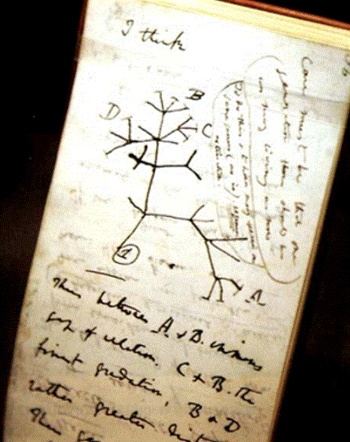 I think
Case must be that one
generation then should be
as many living as now
To do this & to have many species in
same genus (as is) requires
extinction.
B
D
C
A
1
Thus between A & B. immens
gap of relation. C & B. the
finest gradation, B & D
rather greater distin
Thus gen